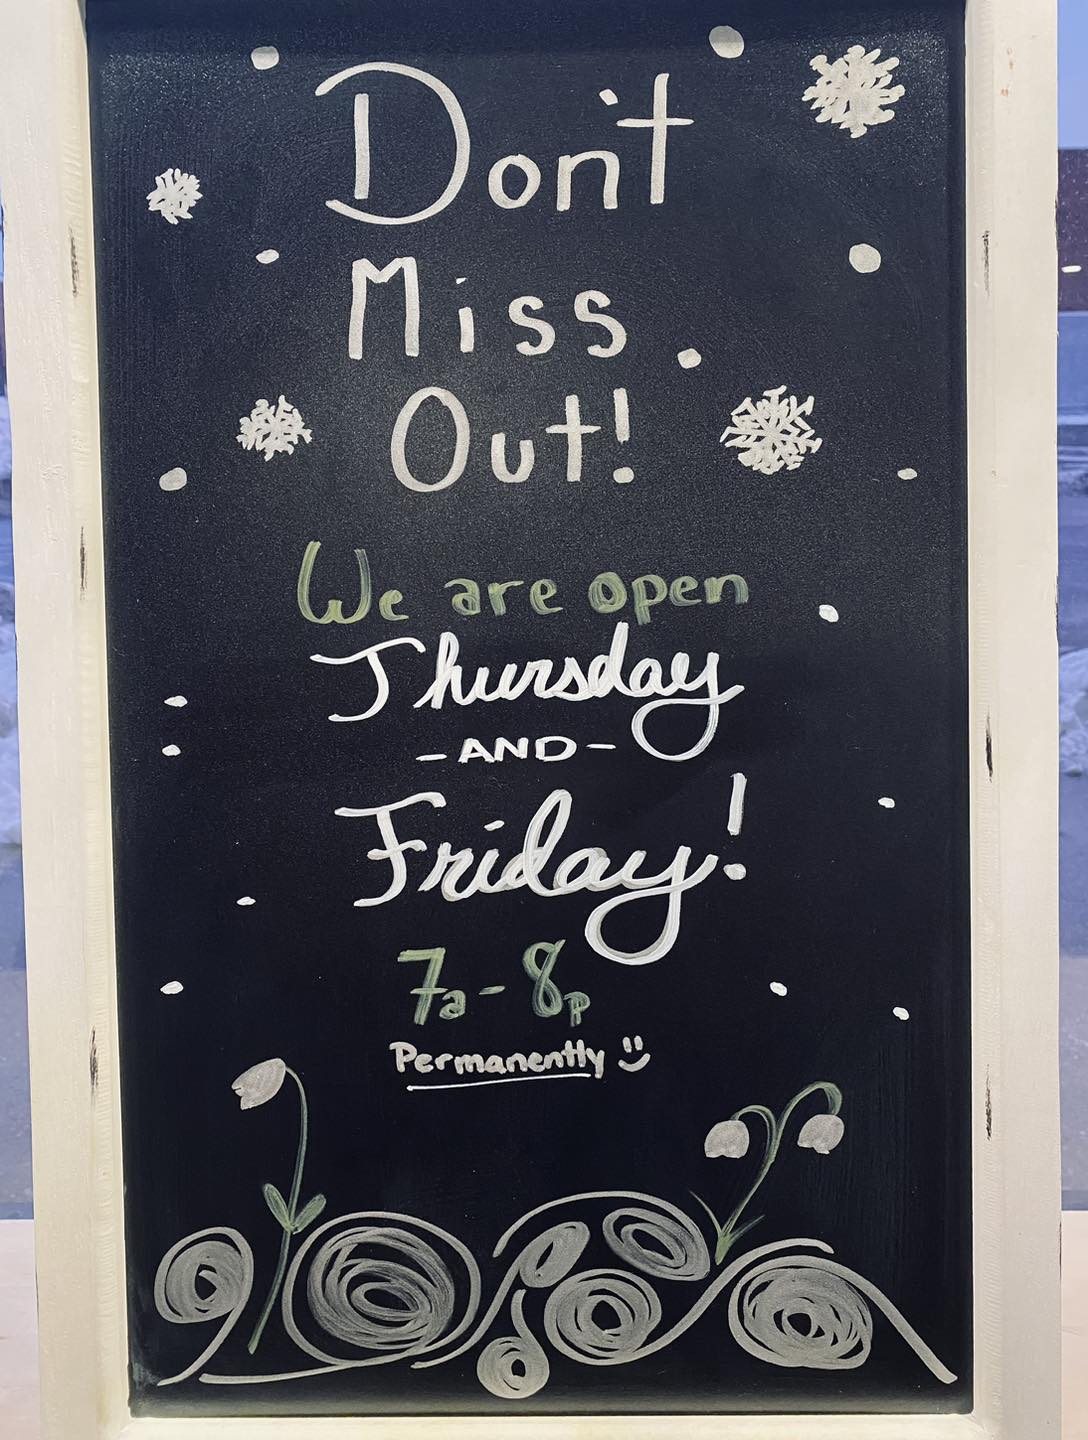 Don't
Miss
Out!
We are open
Thursday
- AND -
Friday!
7a - 8p
Permanently :)